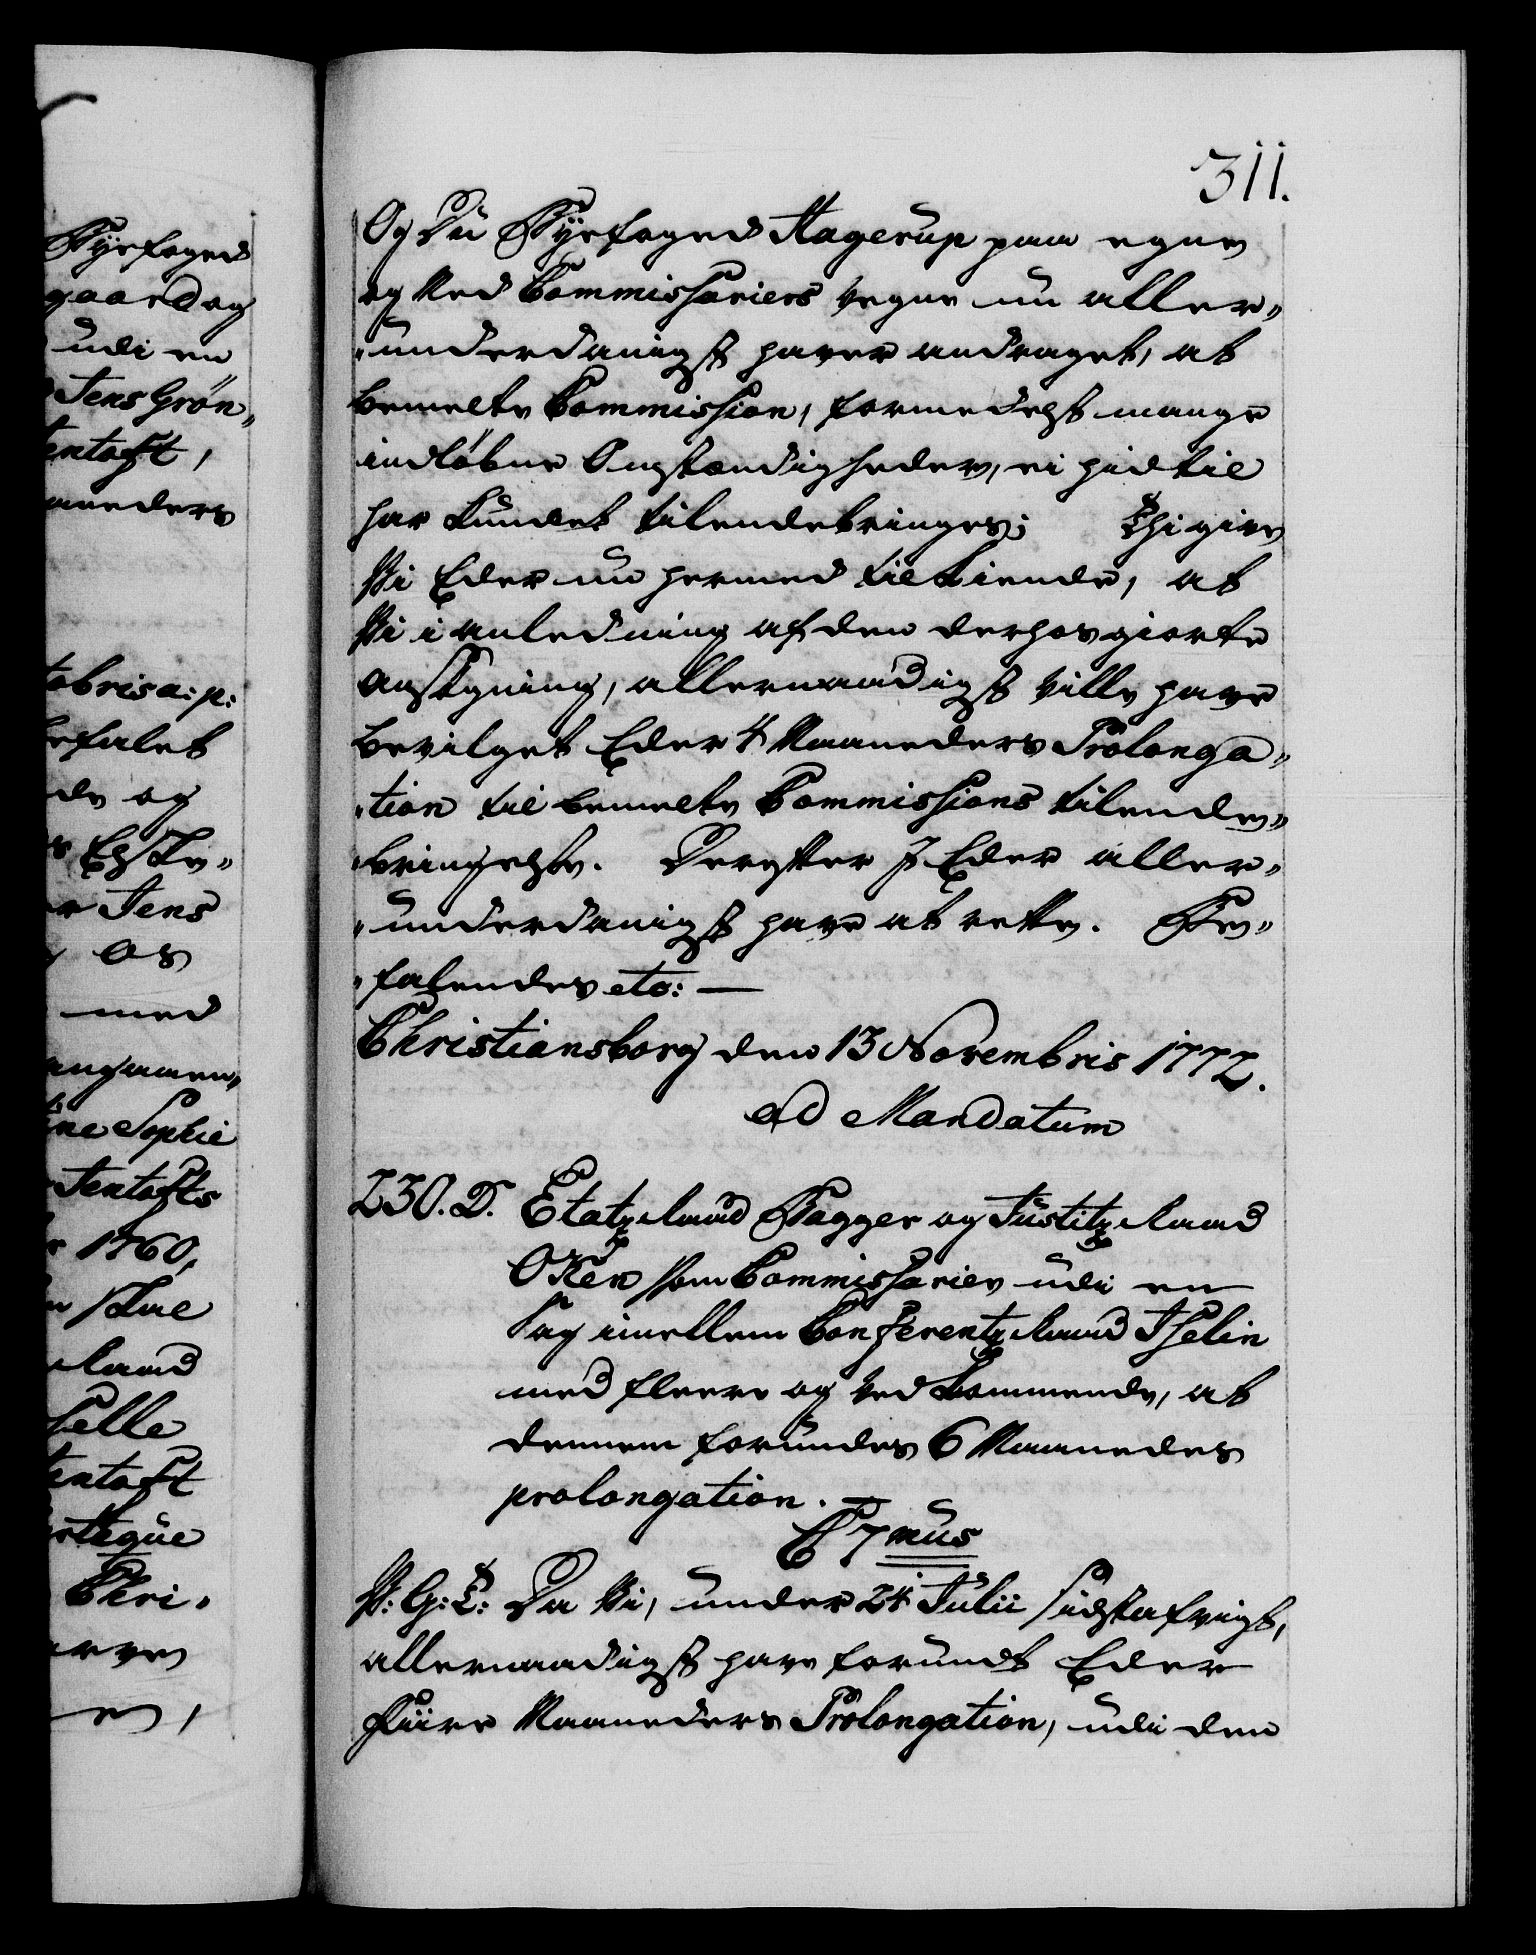 311.
Og Du Byefoged Hagerup paa egne
og Med Commissariers vegne nu aller-
underdanigst haver andraget, at
bemelte Commission, formedelst mange
indløbne Omstændigheder, ei hidtil
har kundet tilendebringes; Thi give
Vi Eder nu hermed tilkiende, at
Vi i anledning af den derhos giorte
Ansøgning, allernaadigst ville have
bevilget Eder 4 Maaneders Prolonga-
tion til bemelte Commissions tilende-
bringelse. Derefter I Eder aller-
underdanigst have at rette. Be-
falendes etc: —
Christiansborg den 13 Novembris 1772.
ad Mandatum
230. D. Etatz Raad Bagger og Justitz Raad
Oken som Commissarier udi en
Sag imellem Conferentz Raad Iselin
med fleere og Vedkommende, at
dennem forundes 6 Maanedes
prolongation.
C 7mus
V: G: T: Da Vi, under 24 Julii sidstafvigt,
allernaadigst have forundt Eder
fiire Maaneders Prolongation, udi den
Byefoged
gaard og
udi en
Jens Grøn-
tentoft,
aneders
tobris a: p:
befalet
de og
Jens
os
med
ine Sophie
Tentofts
1760,
Raad
selle
tentoft
Chri-